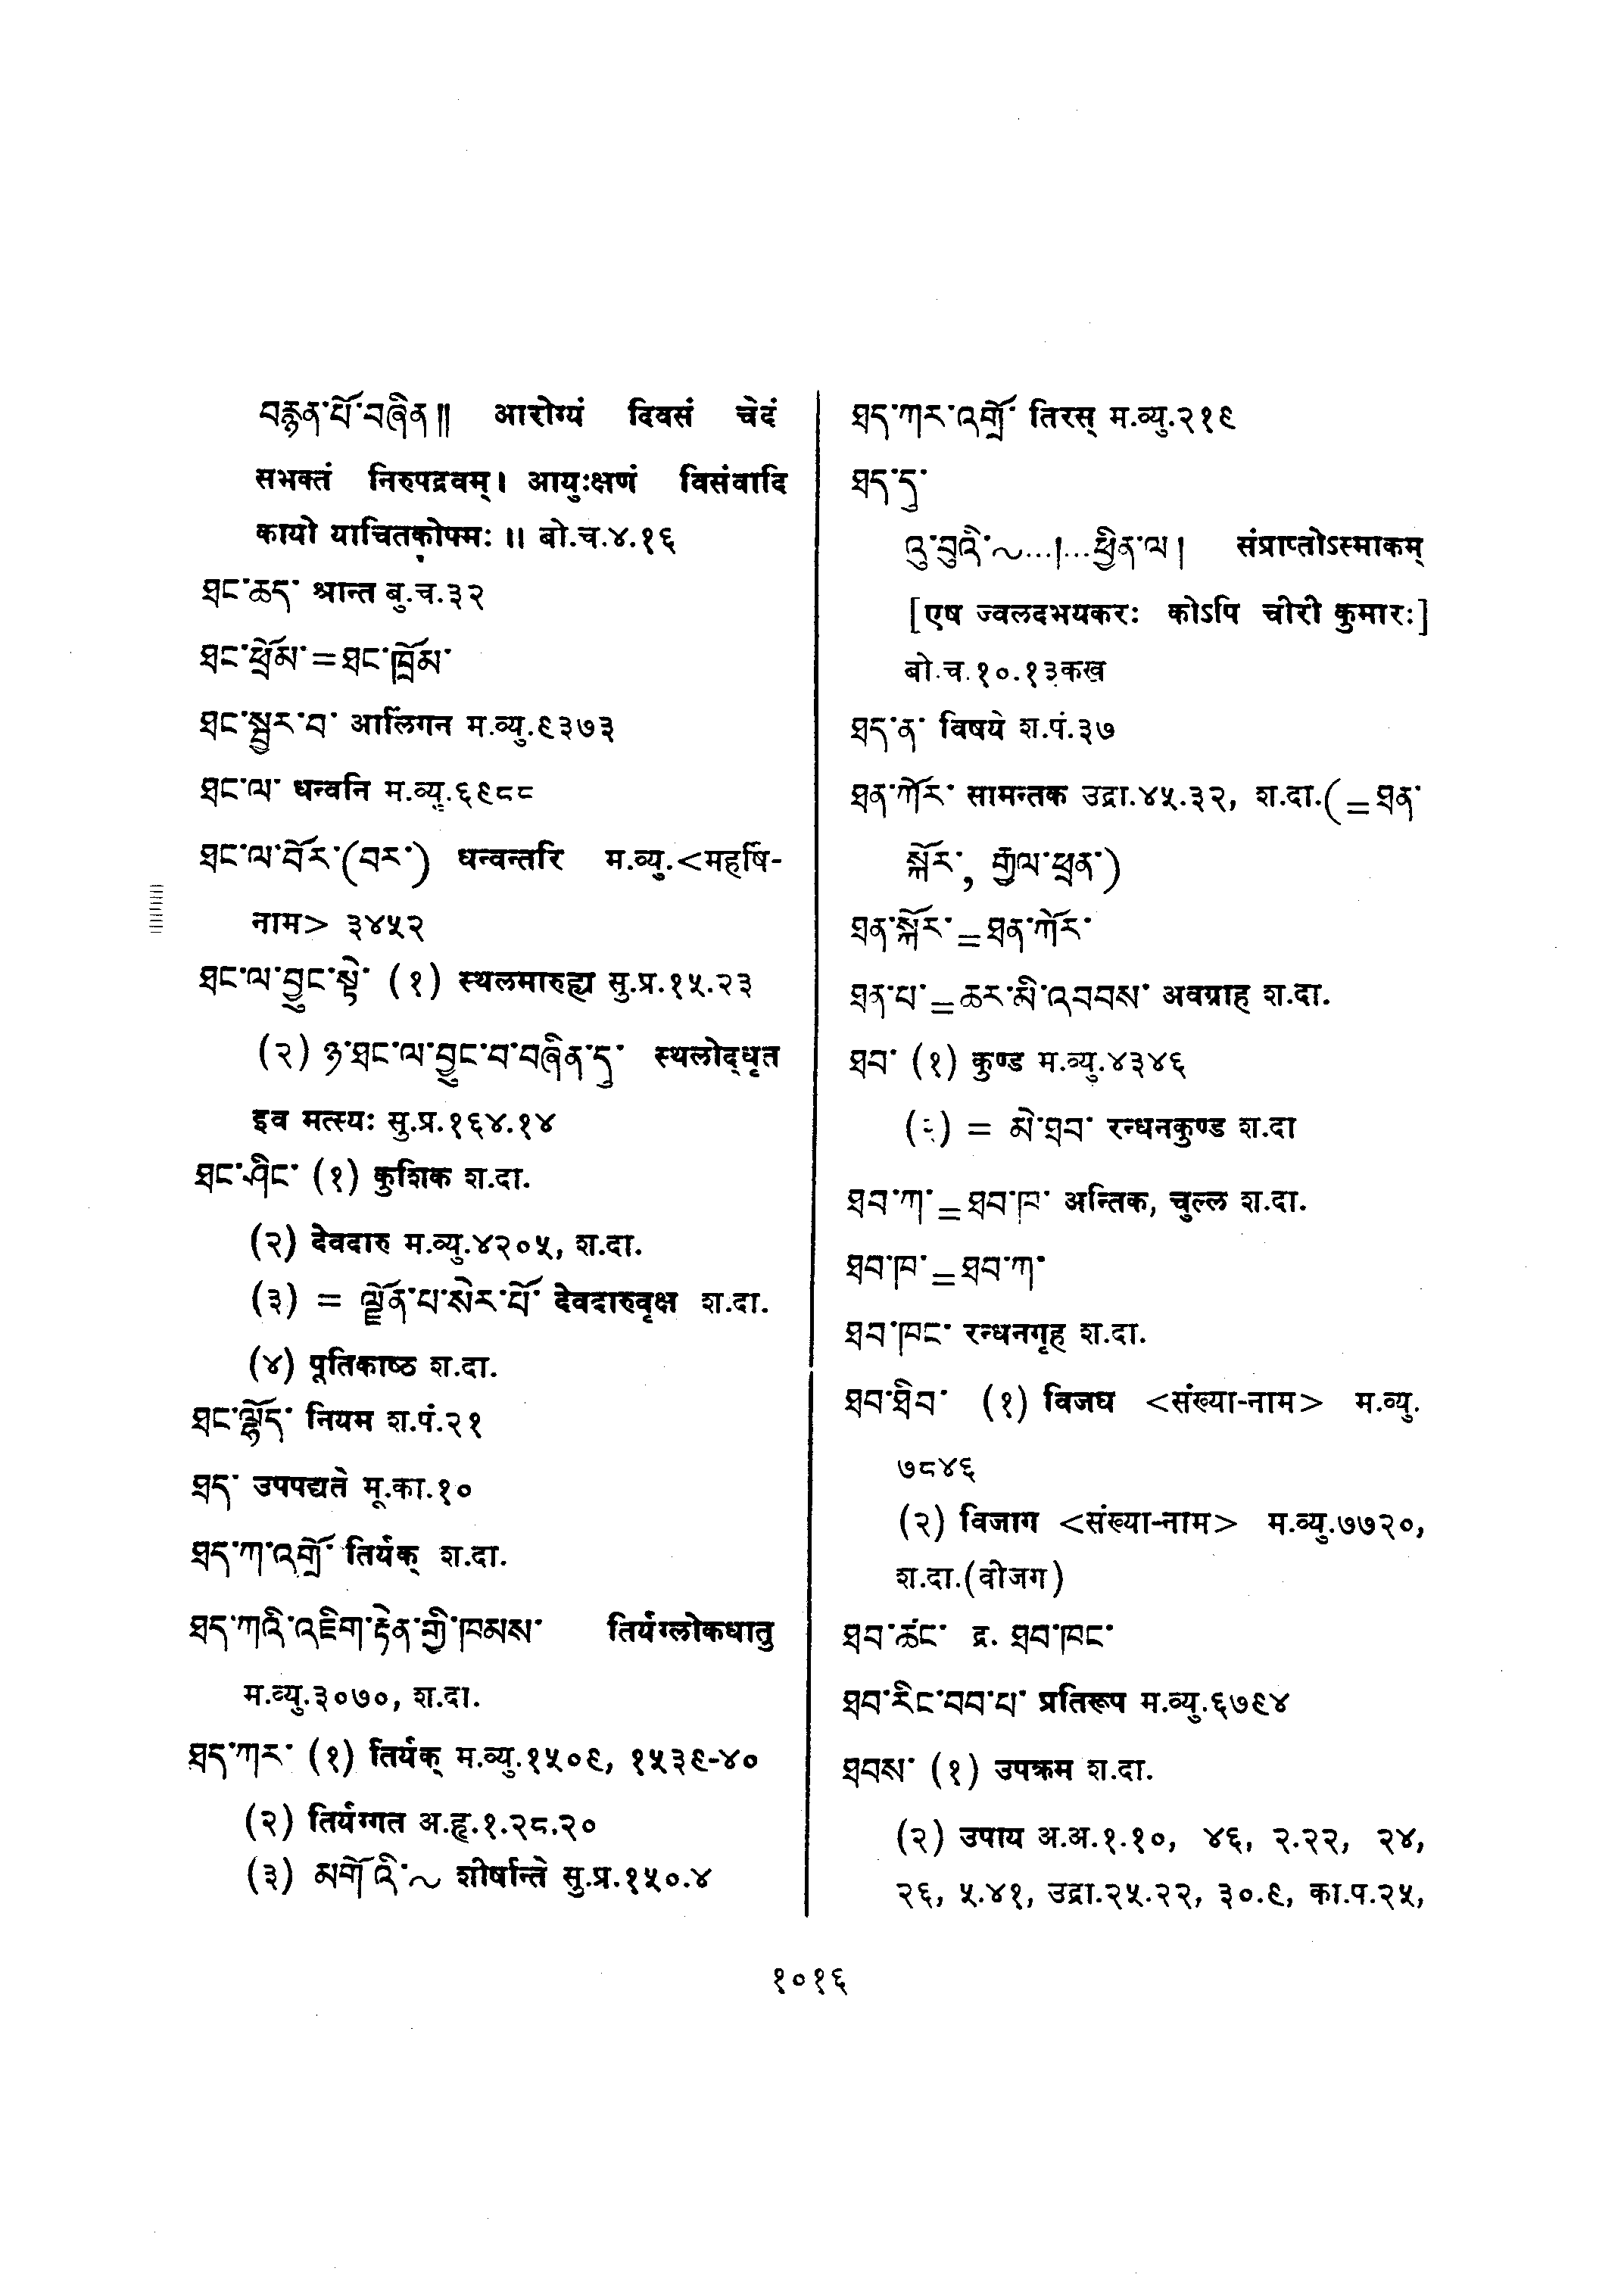 བརྙན་པོ་བཞིན༎ आरोग्यं दिवसं चेदं
सभक्तं निरुपद्रवम्। आयुःक्षणं विसंवादि
कायो याचितकोपमः ॥ बो.च.४.१६
ཐང་ཆད་ श्रान्त बु.च.३२
ཐང་ཕྲོམ་=ཐང་ཁྲོམ་
ཐང་སྦྱར་བ་ आलिंगन म.व्यु.९३७३
ཐང་ལ་ धन्वनि म.व्यु.६९८८
ཐང་ལ་བོར་(བར་) धन्वन्तरि म.व्यु.<महर्षि-
नाम> ३४५२
ཐང་ལ་བྱུང་སྟེ་ (१) स्थलमारुह्य सु.प्र.१५.२३
(२) ཉ་ཐང་ལ་བྱུང་བ་བཞིན་དུ་ स्थलोद्धृत
इव मत्स्यः सु.प्र.१६४.१४
ཐང་ཤིང་ (१) कुशिक श.दा.
(२) देवदारु म.व्यु.४२०५, श.दा.
(३) = ལྗོན་པ་སེར་པོ་ देवदारुवृक्ष श.दा.
(४) पूतिकाष्ठ श.दा.
ཐང་ལྷོད་ नियम श.पं.२१
ཐད་ उपपद्यते मू.का.१०
ཐད་ཀ་འགྲོ་ तिर्यक् श.दा.
ཐད་ཀའི་འཇིག་རྟེན་གྱི་ཁམས་ तिर्यग्लोकधातु
म.व्यु.३०७०, श.दा.
ཐད་ཀར་ (१) तिर्यक् म.व्यु.१५०९, १५३९-४०
(२) तिर्यग्गत अ.हृ.१.२८.२०
(३) མགོ་འི་~ शीर्षान्ते सु.प्र.१५०.४
ཐད་ཀར་འགྲོ་ तिरस् म.व्यु.२१९
ཐད་དུ་
འུ་བུའི་~...།...ཕྱིན་ལ། संप्राप्तोऽस्माकम्
[एष ज्वलदभयकरः कोऽपि चीरी कुमारः]
बो.च.१०.१३कख
ཐད་ན་ विषये श.पं.३७
ཐན་ཀོར་ सामन्तक उद्रा.४५.३२, श.दा.(=ཐན་
སྐོར་, རྒྱལ་ཕྲན་)
ཐན་སྐོར་=ཐན་ཀོར་
ཐན་པ་=ཆར་མི་འབབས་ अवग्राह श.दा.
ཐབ་ (१) कुण्ड म.व्यु.४३४६
(२) = མེ་ཐབ་ रन्धनकुण्ड श.दा
ཐབ་ཀ་=ཐབ་ཁ་ अन्तिक, चुल्ल श.दा.
ཐབ་ཁ་=ཐབ་ཀ་
ཐབ་ཁང་ रन्धनगृह श.दा.
ཐབ་ཐིབ་ (१) विजघ <संख्या-नाम> म.व्यु.
७८४६
(२) विजाग <संख्या-नाम> म.व्यु.७७२०,
श.दा.(वीजग)
ཐབ་ཚང་ द्र. ཐབ་ཁང་
ཐབ་རིང་བབ་པ་ प्रतिरूप म.व्यु.६७९४
ཐབས་ (१) उपक्रम श.दा.
(२) उपाय अ.अ.१.१०, ४६, २.२२, २४,
२६, ५.४१, उद्रा.२५.२२, ३०.९, का.प.२५,
१०१६